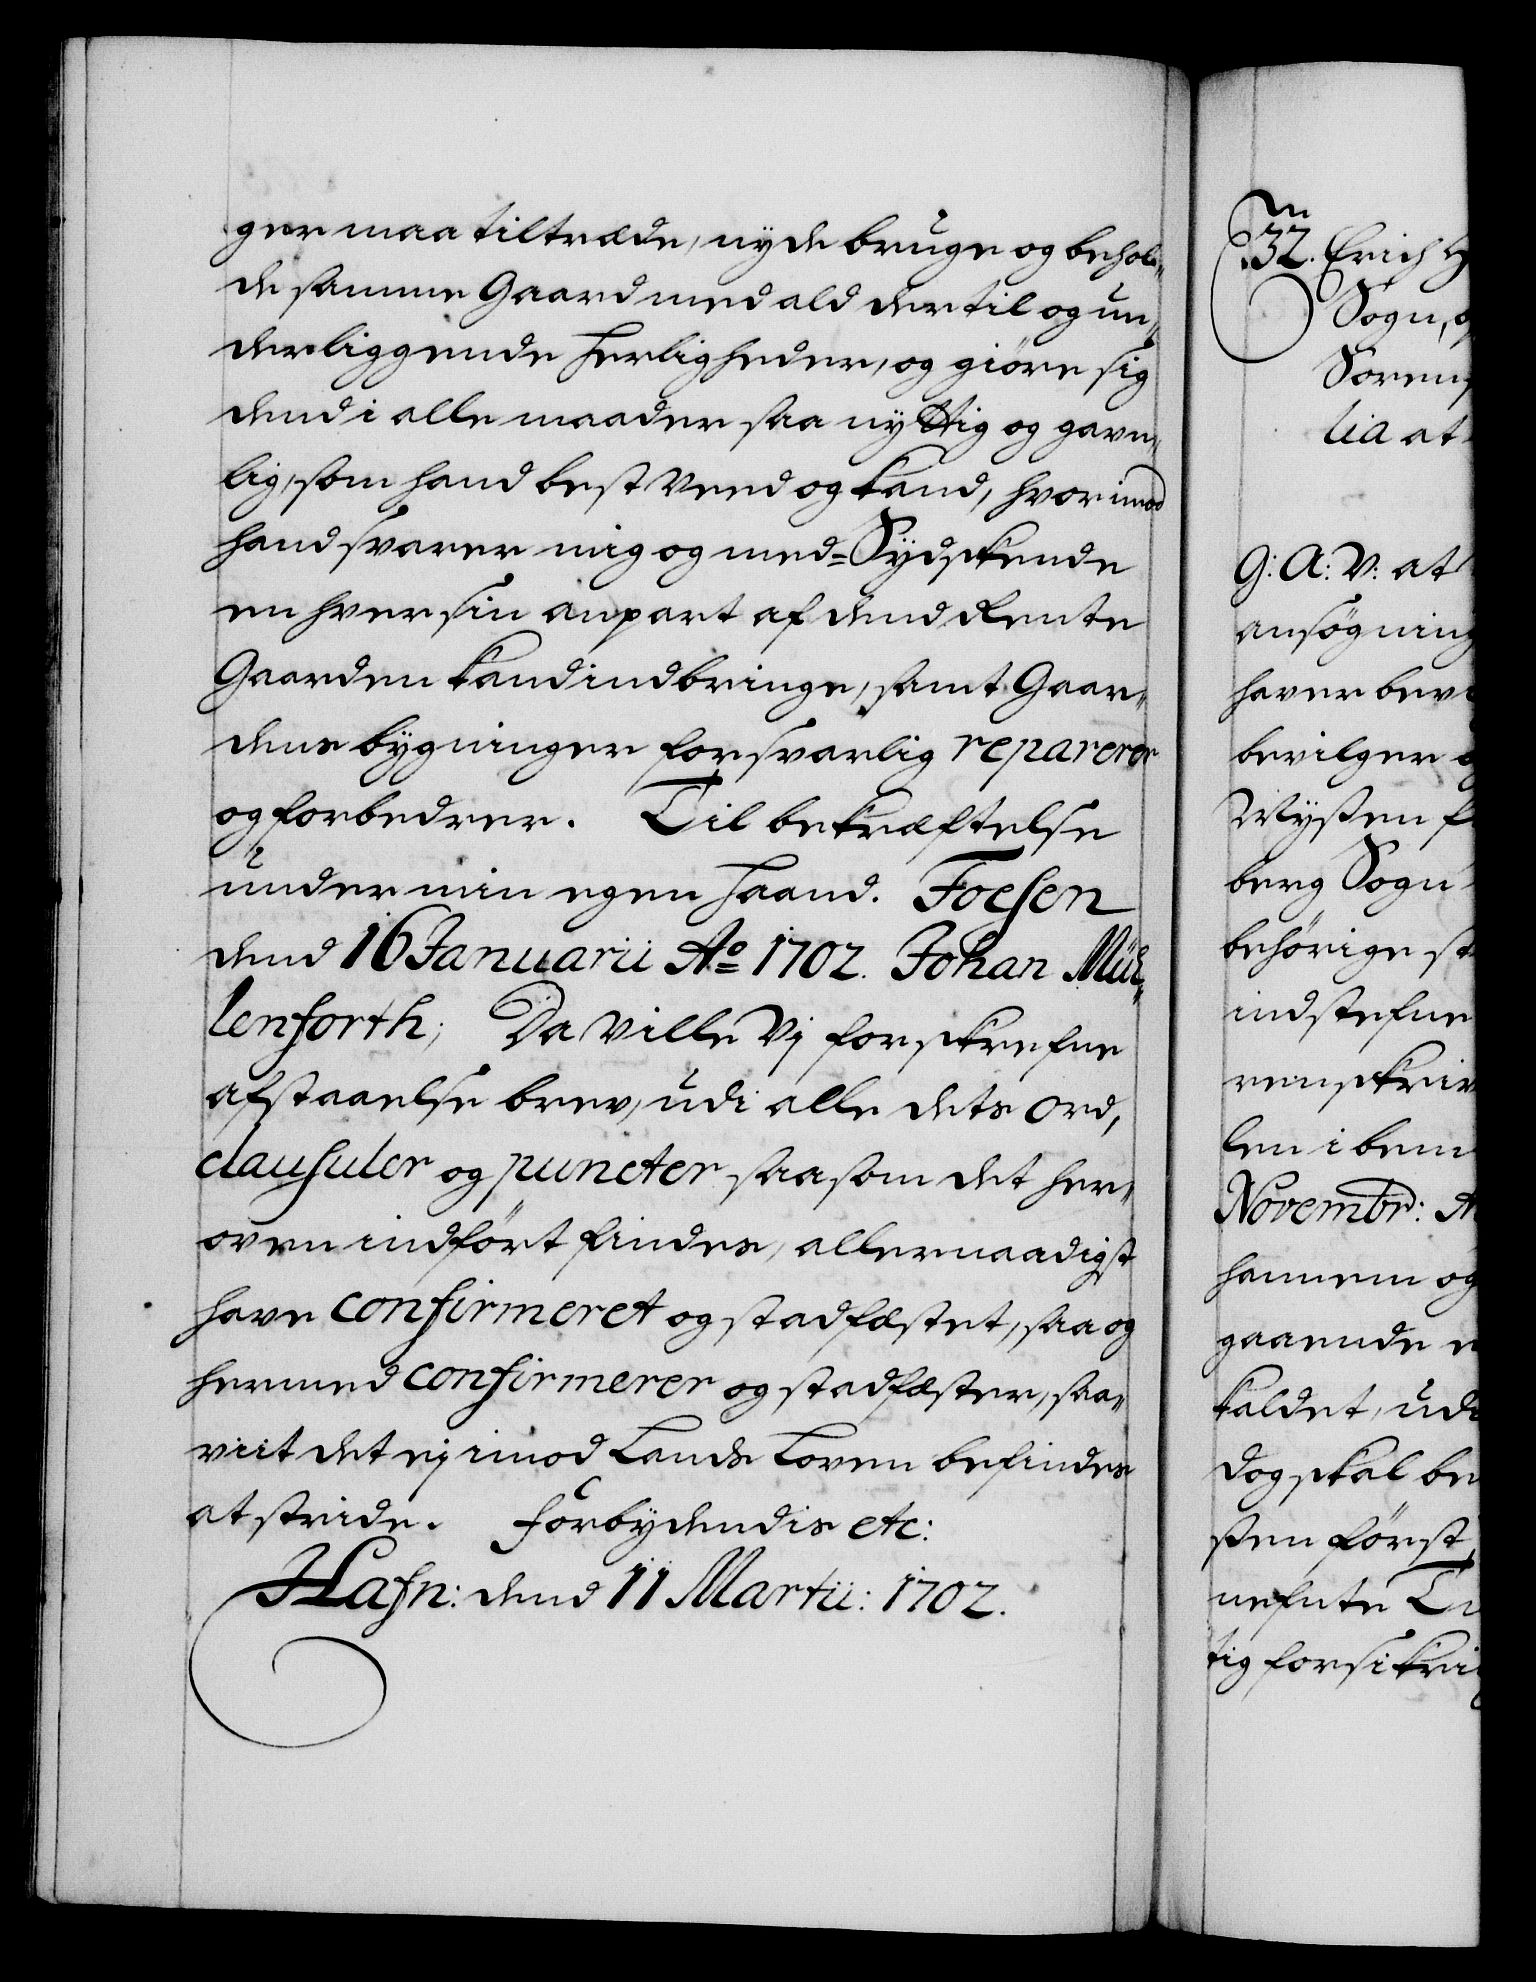 ger maa tiltræde, nyde bruge og behol„
de samme Gaard med ald dertil og un„
derliggende herligheder, og giöre sig
dend i alle maader saa nyttig og gavn„
lig, som hand best veed og kand, hvorimod
hand svarer mig og med=Sydskende
en hver sin anpart af dend Rente
Gaarden kand indbringe, samt Gaar„
dens bygninger forsvarlig reparerer
og forbedrer. Til bekræftelse
under min egen haand. Foesen
dend 16 Januarii Ao 1702. Johan Mül„
lenforth; Da Ville Vj forskrefne
afstaaelse brev, udi alle dets ord,
clausuler og puncter saasom det her„
oven indfört findes, allernaadigst
have confirmeret og stadfæstet, saa og
hermed confirmerer og stadfæster, saa„
viit det ej imod Lands Loven befindes
at stride. Forbydendis etc:
Hafn: dend 11 Martii: 1702.
32. Erich H
Sogn, o
Sörens
lia at
G: A: V: at
ansögning
haver bev
bevilger o
Mysten f
berg Sogn
behörige st
indstefne
renskriv
len i bem
Novembr: A
hannem og
gaaende e
kaldet, udi
dog skal be
sten först
nefnte Ti
tig forsikri